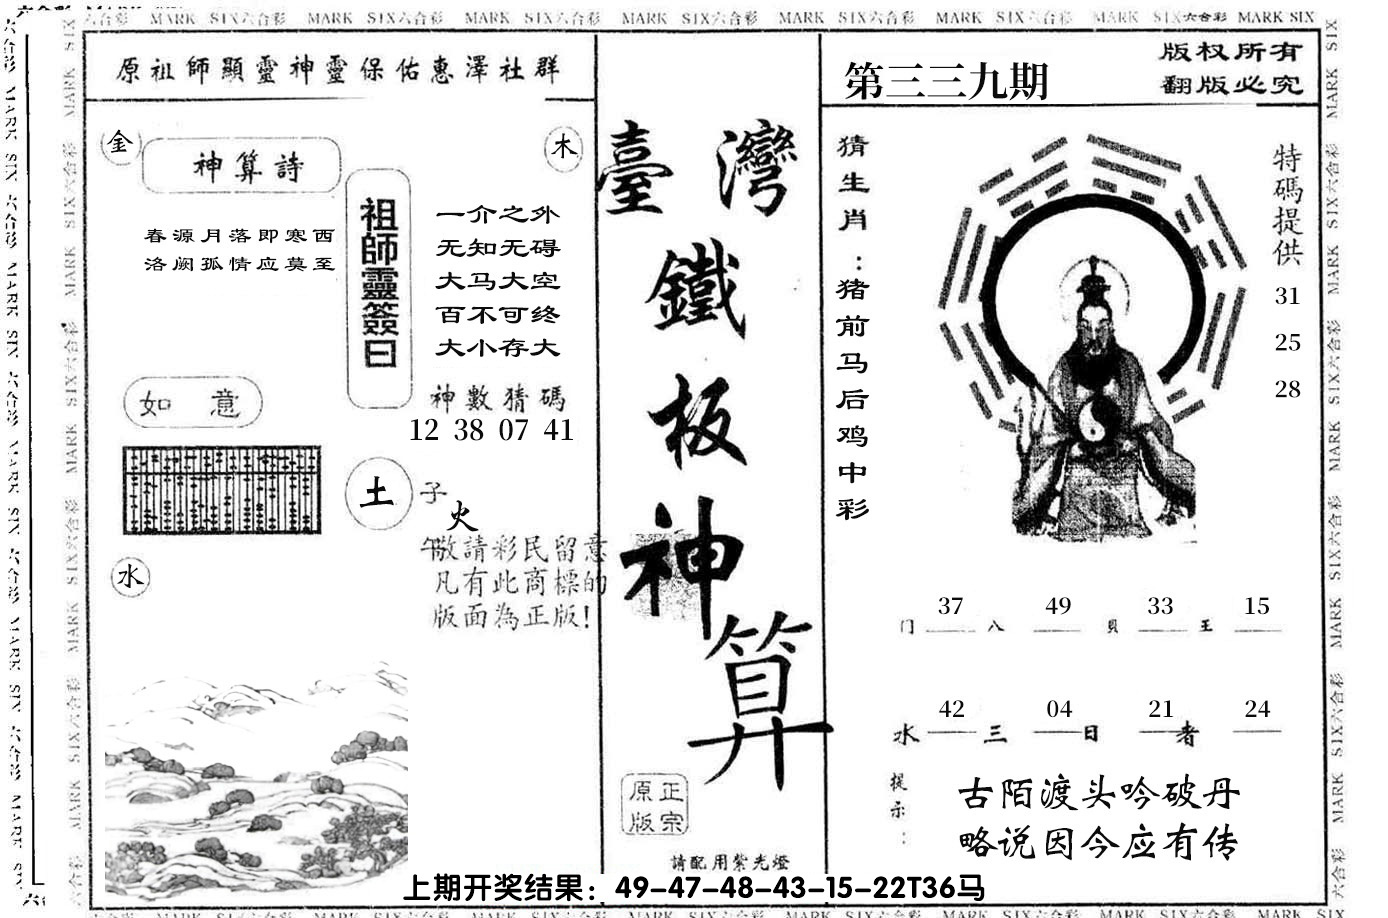 MARK SIX六合彩 MARK SIX六合彩 MARK SIX六合彩 MARK SIX六合彩 MARK SIX六合彩 MARK SIX六合彩 MARK SIX六合彩 MARK SIX
原祖師顯靈神靈保佑惠澤社群
金
木
神算詩
春源月落即寒西
洛阙孤情应莫至
祖師靈簽曰
一介之外
无知无碍
大马大空
百不可终
大小存大
神數猜碼
12 38 07 41
如意
土
子
火
午
水
敬請彩民留意
凡有此商標的
版面為正版!
臺灣
鐵
板
神
算
正宗
原版
請配用紫光燈
第三三九期
版权所有
翻版必究
猜生肖:猪前马后鸡中彩
特碼提供
31
25
28
37 49 33 15
门 八 貝 王
42 04 21 24
水 三 日 者
提示:
古陌渡头吟破丹
略说因今应有传
上期开奖结果：49-47-48-43-15-22T36马